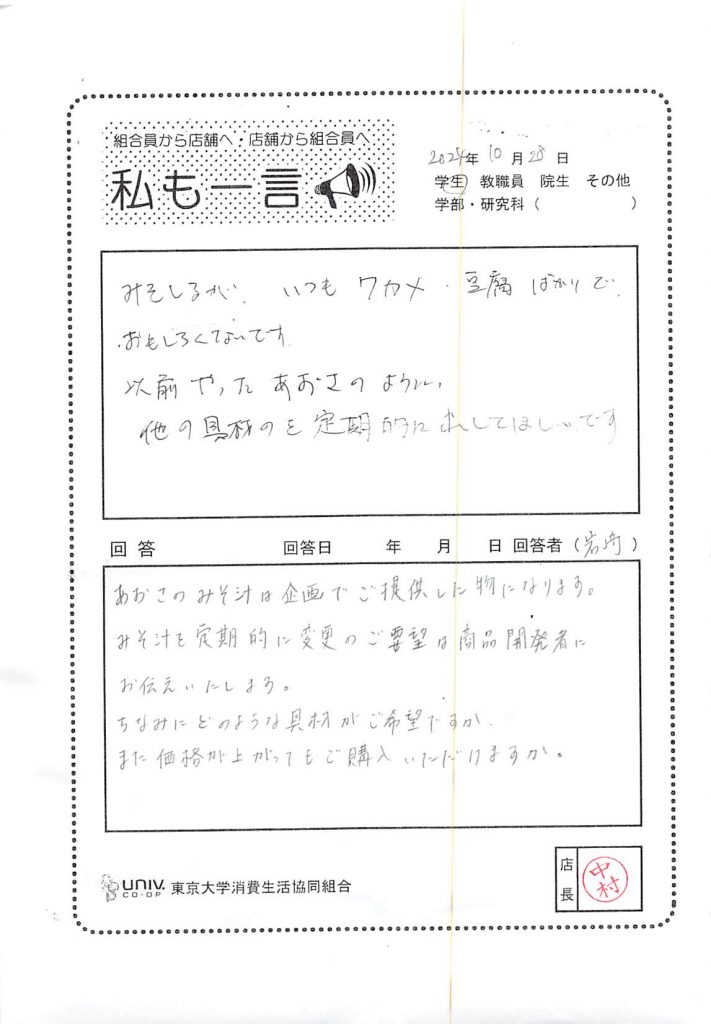 組合員から店舗へ・店舗から組合員へ
私も一言
2024年 10月 28日
学生 教職員 院生 その他
学部・研究科（　　　）
みそしるが、いつもワカメ・豆腐ばかりで、
おもしろくないです。
以前やったあおさのように、
他の具材のを定期的に出してほしいです
回答 回答日 年 月 日 回答者（岩崎）
あおさのみそ汁は企画でご提供した物になります。
みそ汁を定期的に変更のご要望は商品開発者に
お伝えいたします。
ちなみにどのような具材がご希望ですか。
また価格が上がってもご購入いただけますか。
UNIV. CO-OP 東京大学消費生活協同組合
店長 中村